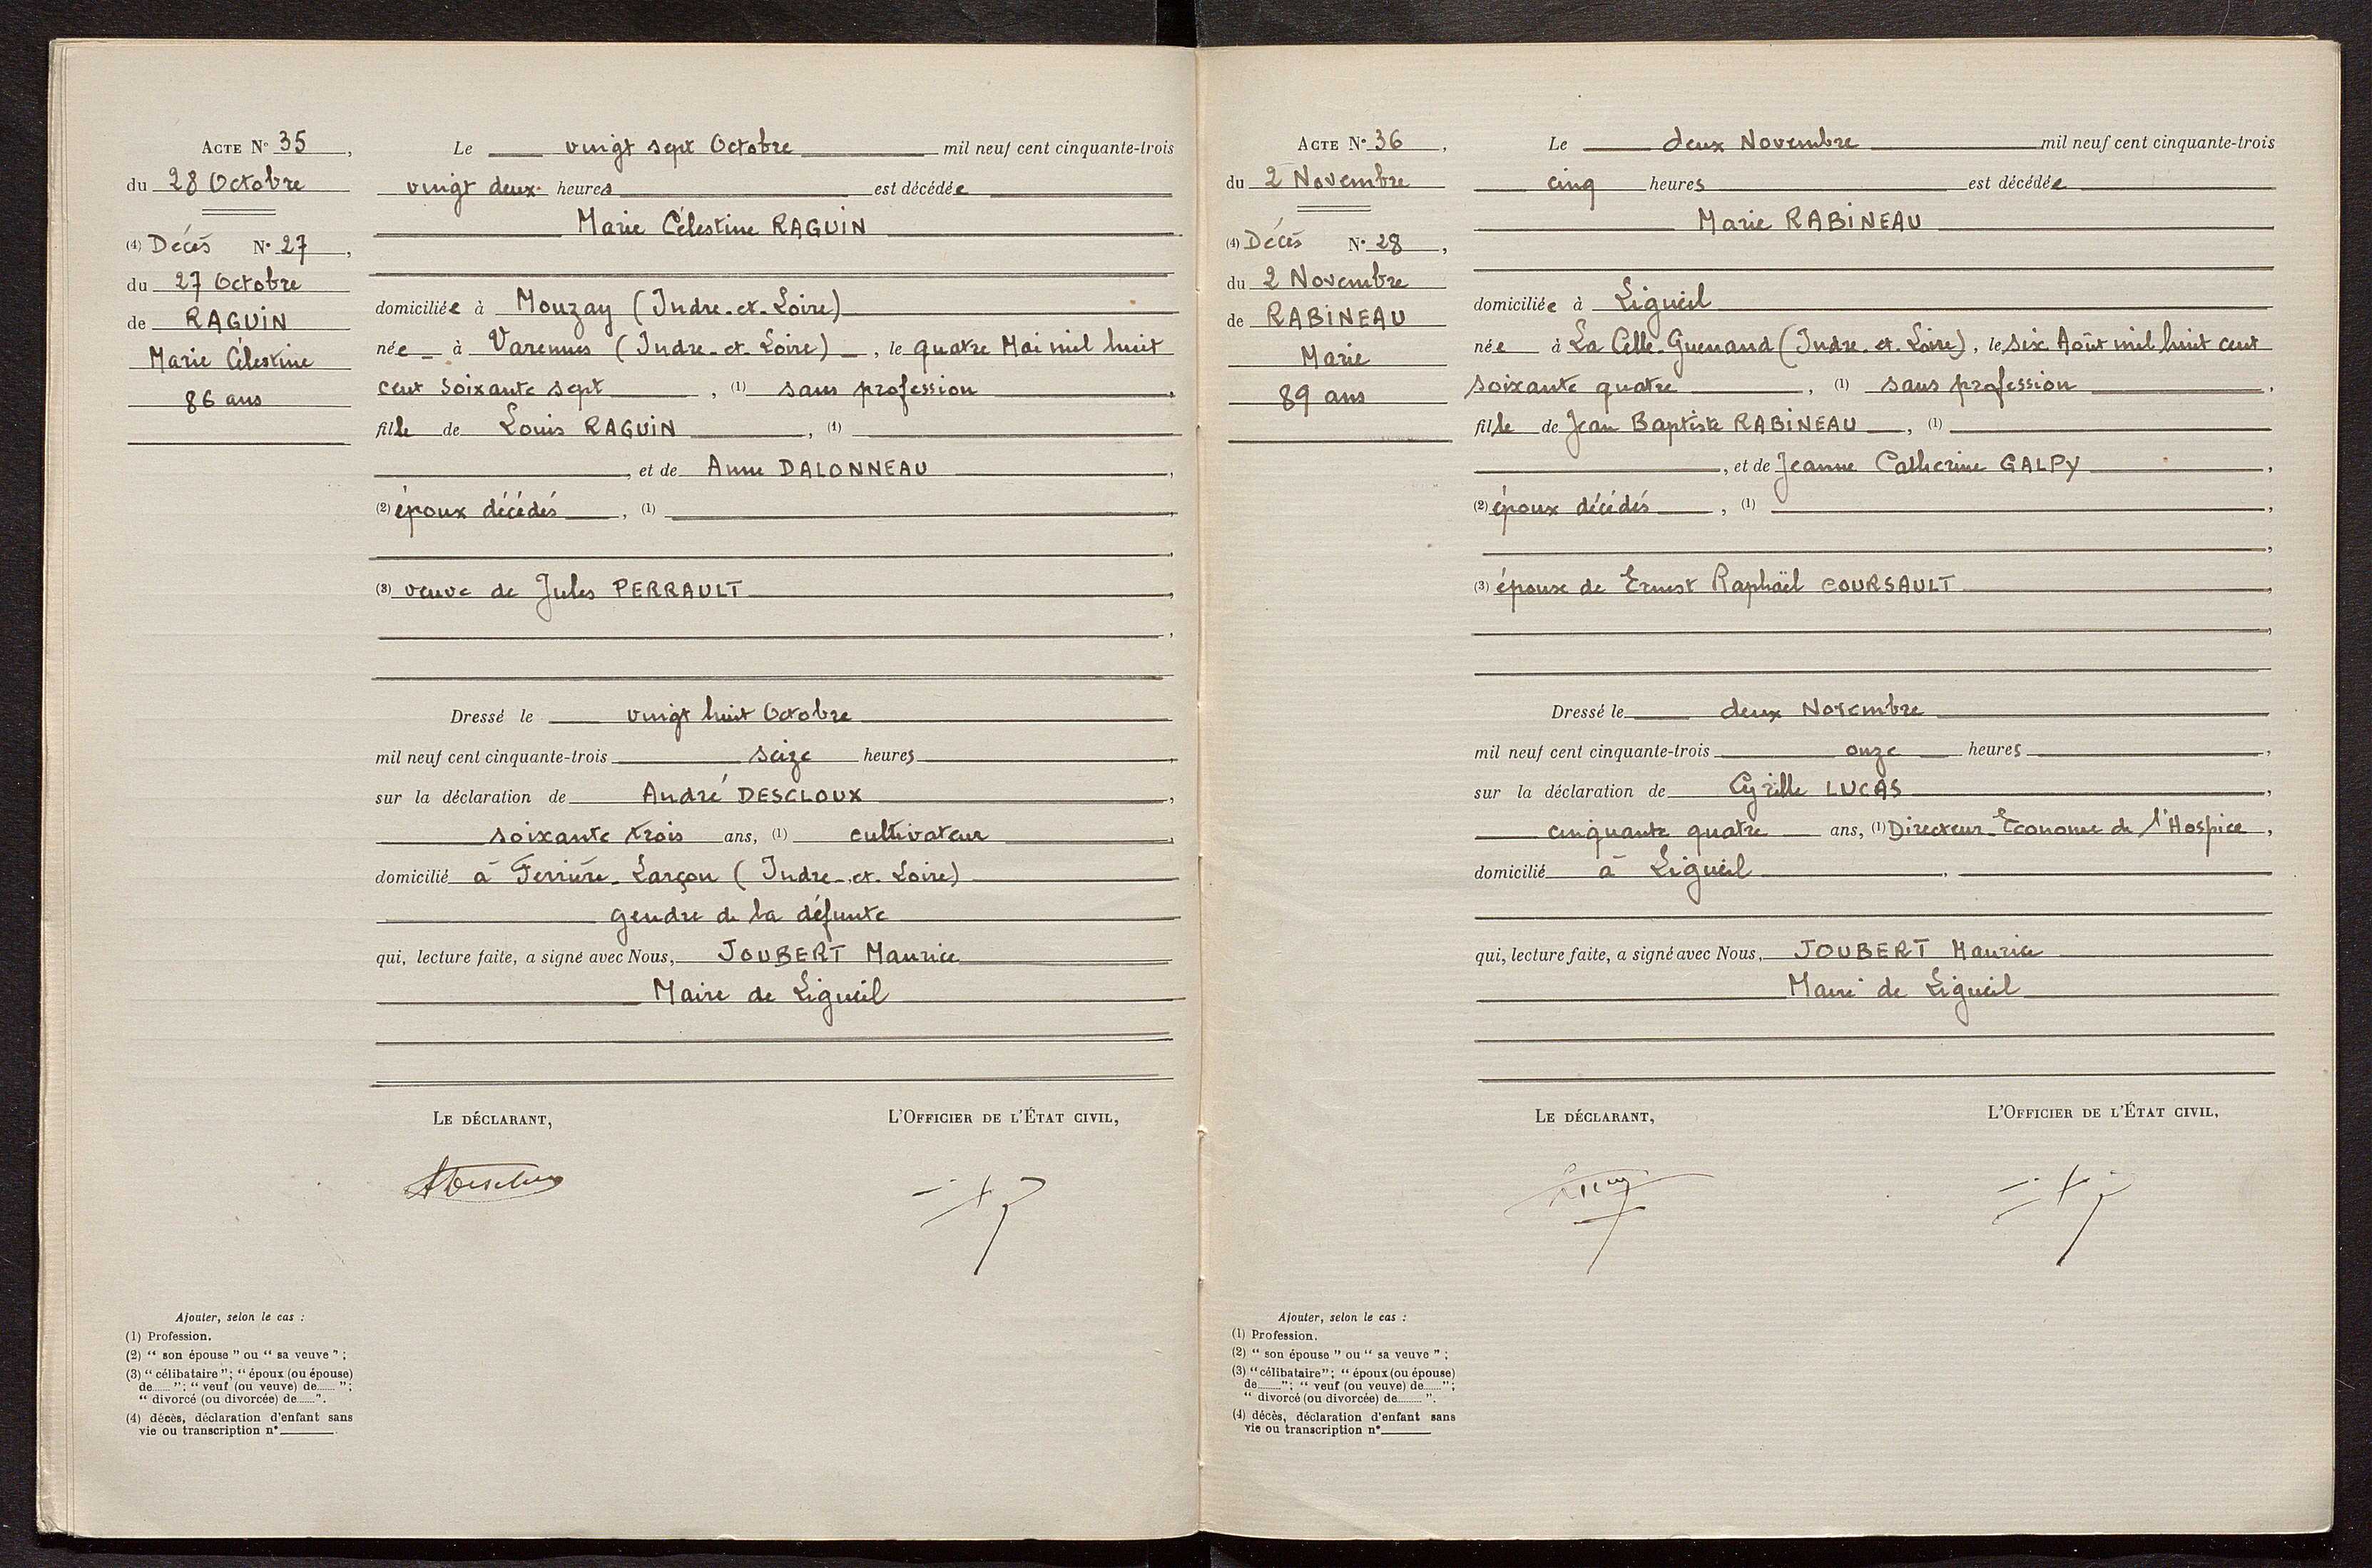 ACTE N° 35,
du 28 Octobre
(4) Décès N° 27,
du 27 Octobre
de RAGUIN
Marie Célestine
86 ans
Le vingt sept Octobre mil neuf cent cinquante-trois
vingt deux heures est décédée
Marie Célestine RAGUIN
domiciliée à Mouzay (Indre-et-Loire)
née à Varennes (Indre-et-Loire), le quatre Mai mil huit
cent soixante sept, (1) sans profession,
fille de Louis RAGUIN, (1)
, et de Anne DALONNEAU,
(2) époux décédés, (1)
,
(3) veuve de Jules PERRAULT,
,
Dressé le vingt huit Octobre
mil neuf cent cinquante-trois seize heures,
sur la déclaration de André DESCLOUX,
soixante trois ans, (1) cultivateur,
domicilié à Ferrière-Larçon (Indre-et-Loire)
gendre de la défunte
qui, lecture faite, a signé avec Nous, JOUBERT Maurice
Maire de Ligueil
LE DÉCLARANT, L'OFFICIER DE L'ÉTAT CIVIL,
Ajouter, selon le cas :
(1) Profession.
(2) “ son épouse ” ou “ sa veuve ” ;
(3) “ célibataire ”; “ époux (ou épouse)
de...... ”: “ veuf (ou veuve) de...... ”;
“ divorcé (ou divorcée) de...... ”.
(4) décès, déclaration d'enfant sans
vie ou transcription n°
ACTE N° 36,
du 2 Novembre
(4) Décès N° 28,
du 2 Novembre
de RABINEAU
Marie
89 ans
Le deux Novembre mil neuf cent cinquante-trois
cinq heures est décédée
Marie RABINEAU
domiciliée à Ligueil
née à La Celle-Guenand (Indre-et-Loire), le six Août mil huit cent
soixante quatre, (1) sans profession,
fille de Jean Baptiste RABINEAU, (1)
, et de Jeanne Catherine GALPY,
(2) époux décédés, (1) ,
,
(3) épouse de Ernest Raphaël COURSAULT,
,
Dressé le deux Novembre
mil neuf cent cinquante-trois onze heures,
sur la déclaration de Cyrille LUCAS,
cinquante quatre ans, (1) Directeur-Econome de l'Hospice,
domicilié à Ligueil,
qui, lecture faite, a signé avec Nous, JOUBERT Maurice
Maire de Ligueil
LE DÉCLARANT, L'OFFICIER DE L'ÉTAT CIVIL,
Ajouter, selon le cas :
(1) Profession.
(2) “ son épouse ” ou “ sa veuve ” ;
(3) “ célibataire ”; “ époux (ou épouse)
de...... ”; “ veuf (ou veuve) de...... ”;
“ divorcé (ou divorcée) de...... ”.
(4) décès, déclaration d'enfant sans
vie ou transcription n°